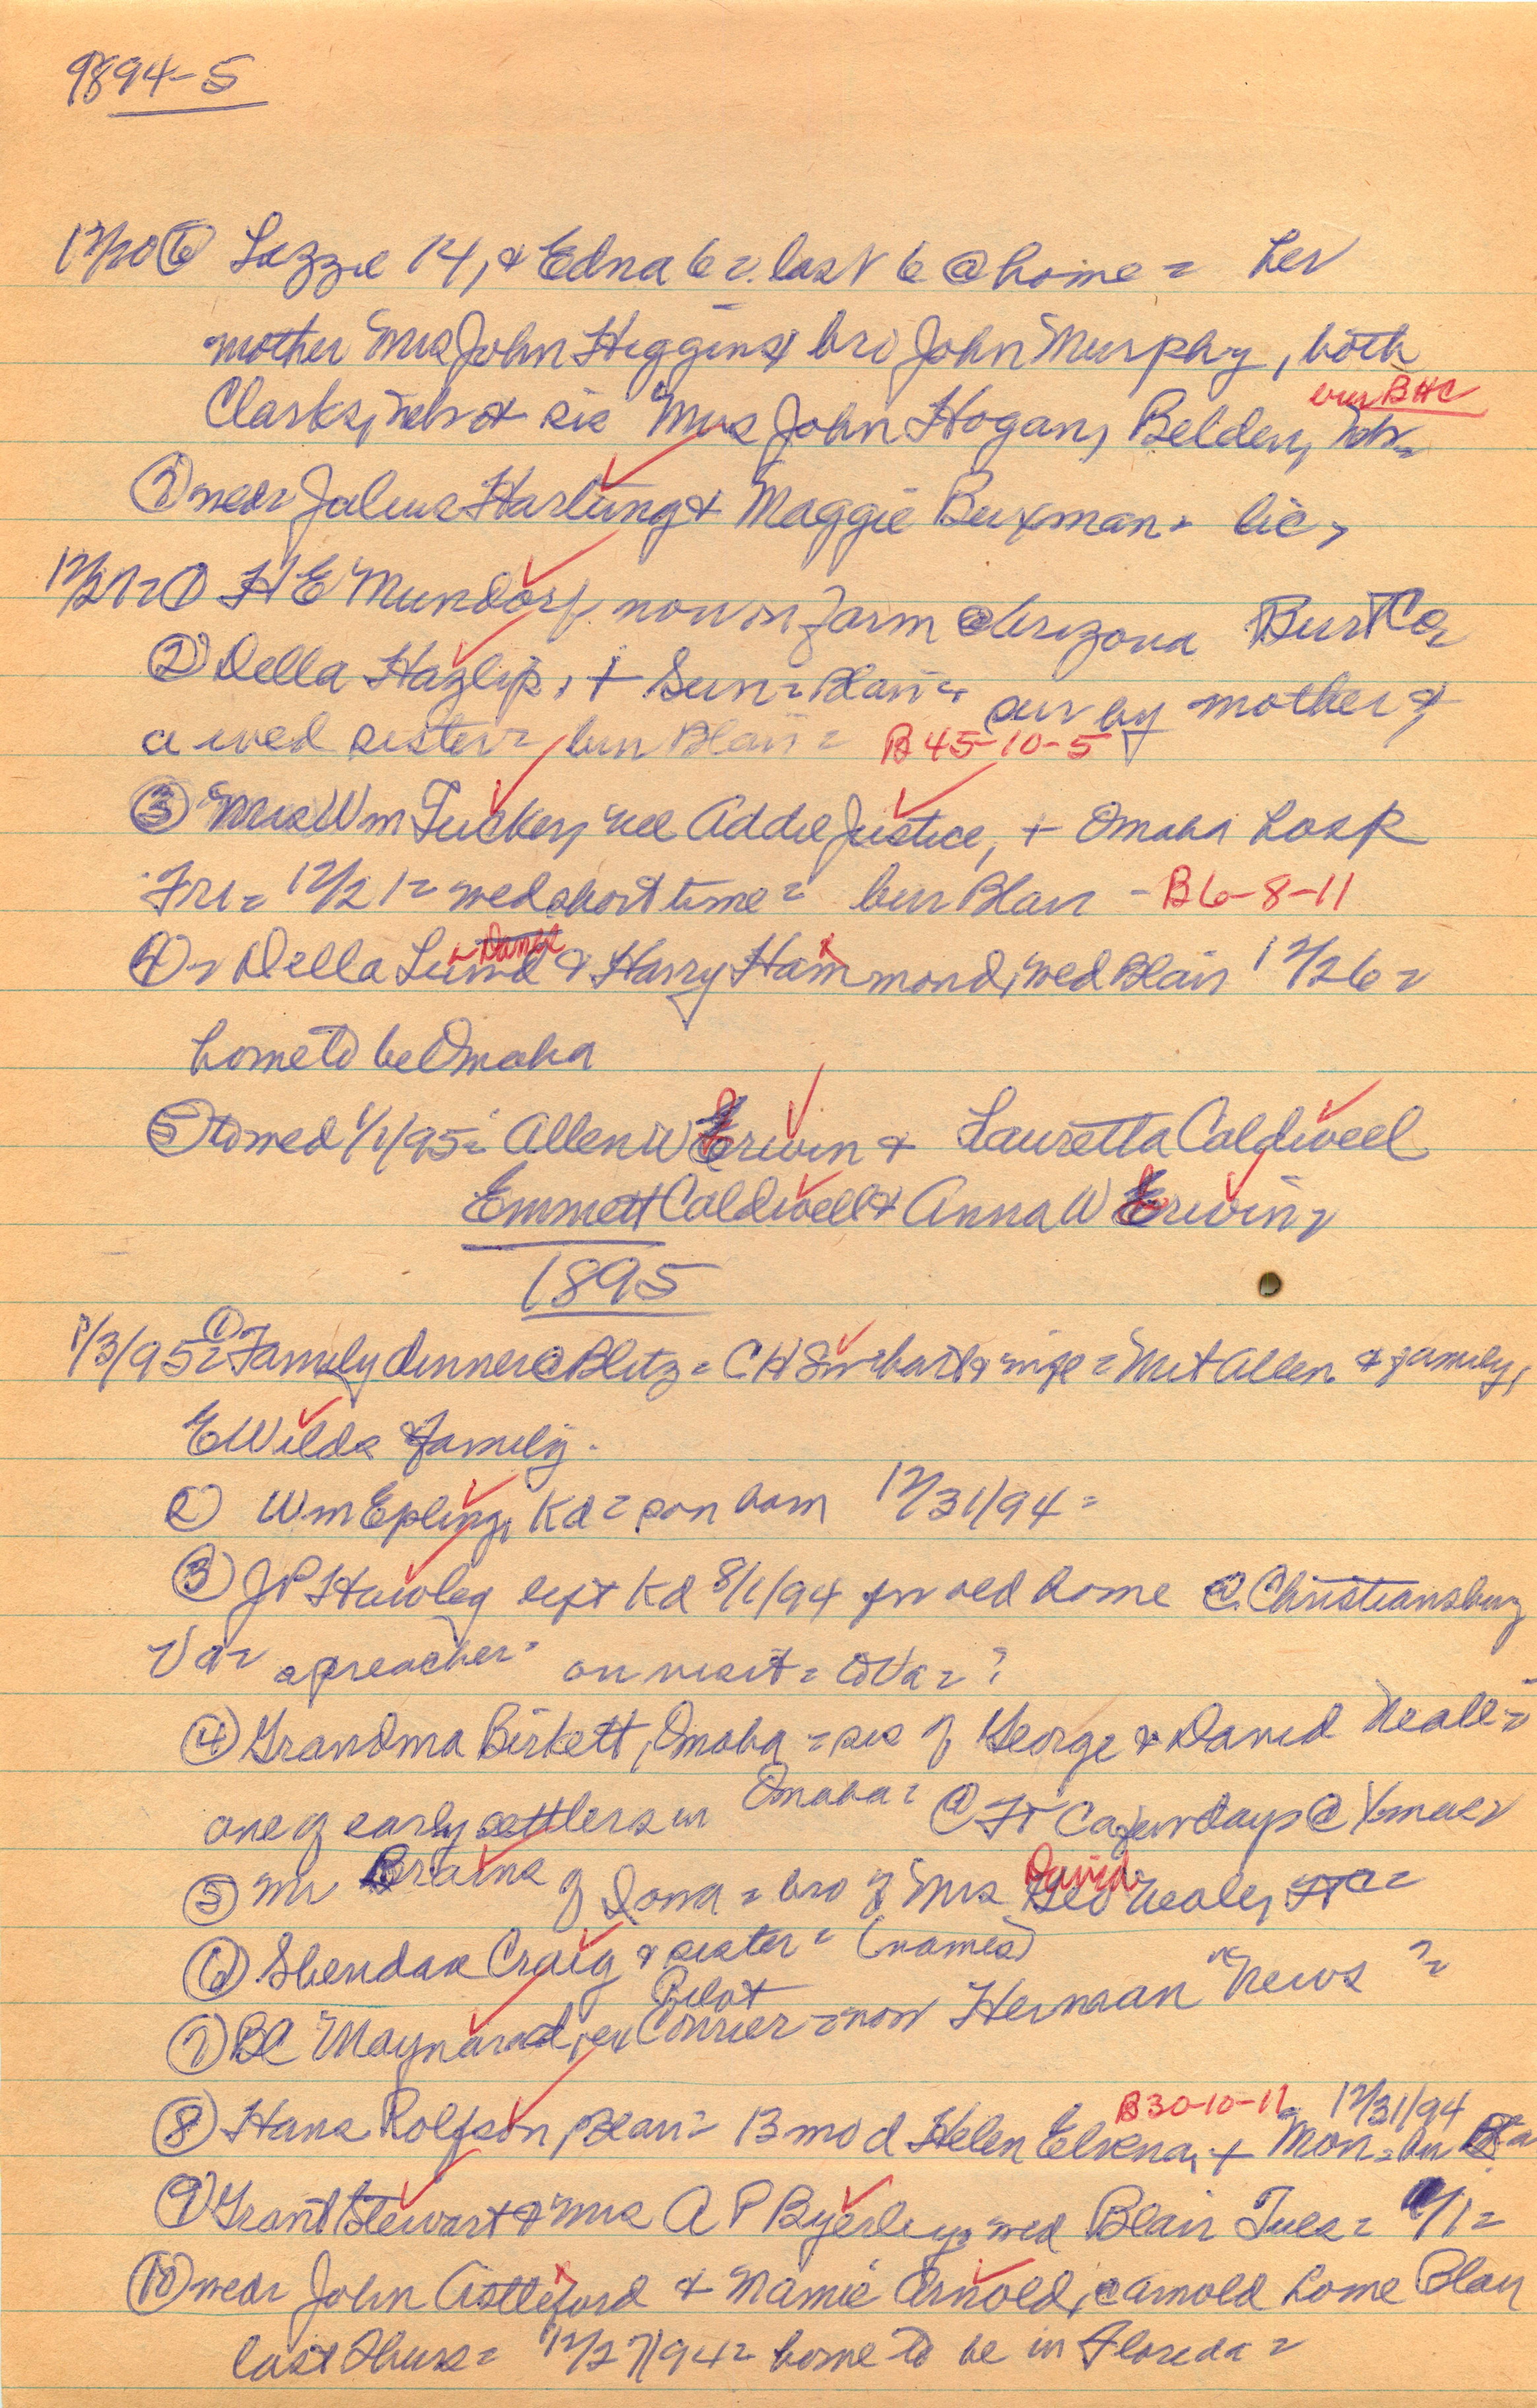 1894-5
12/20 ⑥ Lizzie 14, & Edna 6 = last 6 @ home = her
mother Mrs John Higgins & bro John Murphy, both
bur BHC
Clarks, Neb & sis Mrs John Hogan, Belden, Neb =
⑦ wed = Julius Hartung & Maggie Buxman = lic =
12/27 = ① H E Mundorf, now on farm @ Arizona Burt Co =
② Della Hazlip, + Sun = Blair = sur by mother &
a wed sister = bur Blair = B 45-10-5
③ Mrs Wm Tucker, nee Addie Justice, + Omaha hosp
Fri = 12/21 = wed short time = bur Blair - B6-8-11
④ = Della Lund & Harry Hammond, wed Blair 12/26 =
home to be Omaha
⑤ to wed 1/1/95 = Allen W Erwin & Lauretta Caldwell
Emmett Caldwell & Anna W Erwin =
1895
1/3/95 = ① Family dinner @ Blitz = C H Swihart & wife = Met Allen & family,
E Wilds & family.
② Wm Epling, Kd = son born 12/31/94 =
③ J P Hawley left Kd 8/1/94 for old home @ Christiansburg
Va = a preacher = on visit = to Va = ?
④ Grandma Birkett, Omaha = sis of George & David Neale =
one of early settlers in Omaha = @ Ft C a few days @ Xmas =
⑤ Mr of Iowa = bro of Mrs David Geo Neale, Ft C =
⑥ Craig & sister = (names)
Pilot
⑦ BC Maynard, ex Courier = now Herman "News" =
B30-10-11 12/31/94
⑧ Hans Rolfson, Blair = 13 mo d Helen Elvena, + Mon =
⑨ Grant Stewart & Mrs A P Byerley, wed Blair Tues = 1/1 =
⑩ wed = John Astleford & Mamie Arnold, @ Arnold home Blair
last Thurs = 12/27/94 = home to be in Florida =